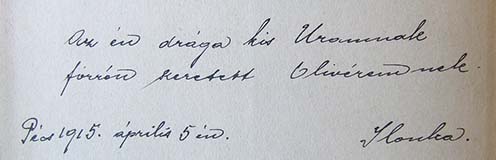 Az én drága kis Uramnak
forrón szeretett Olivéremnek.
Pécs 1915. április 5 én. Ilonka.